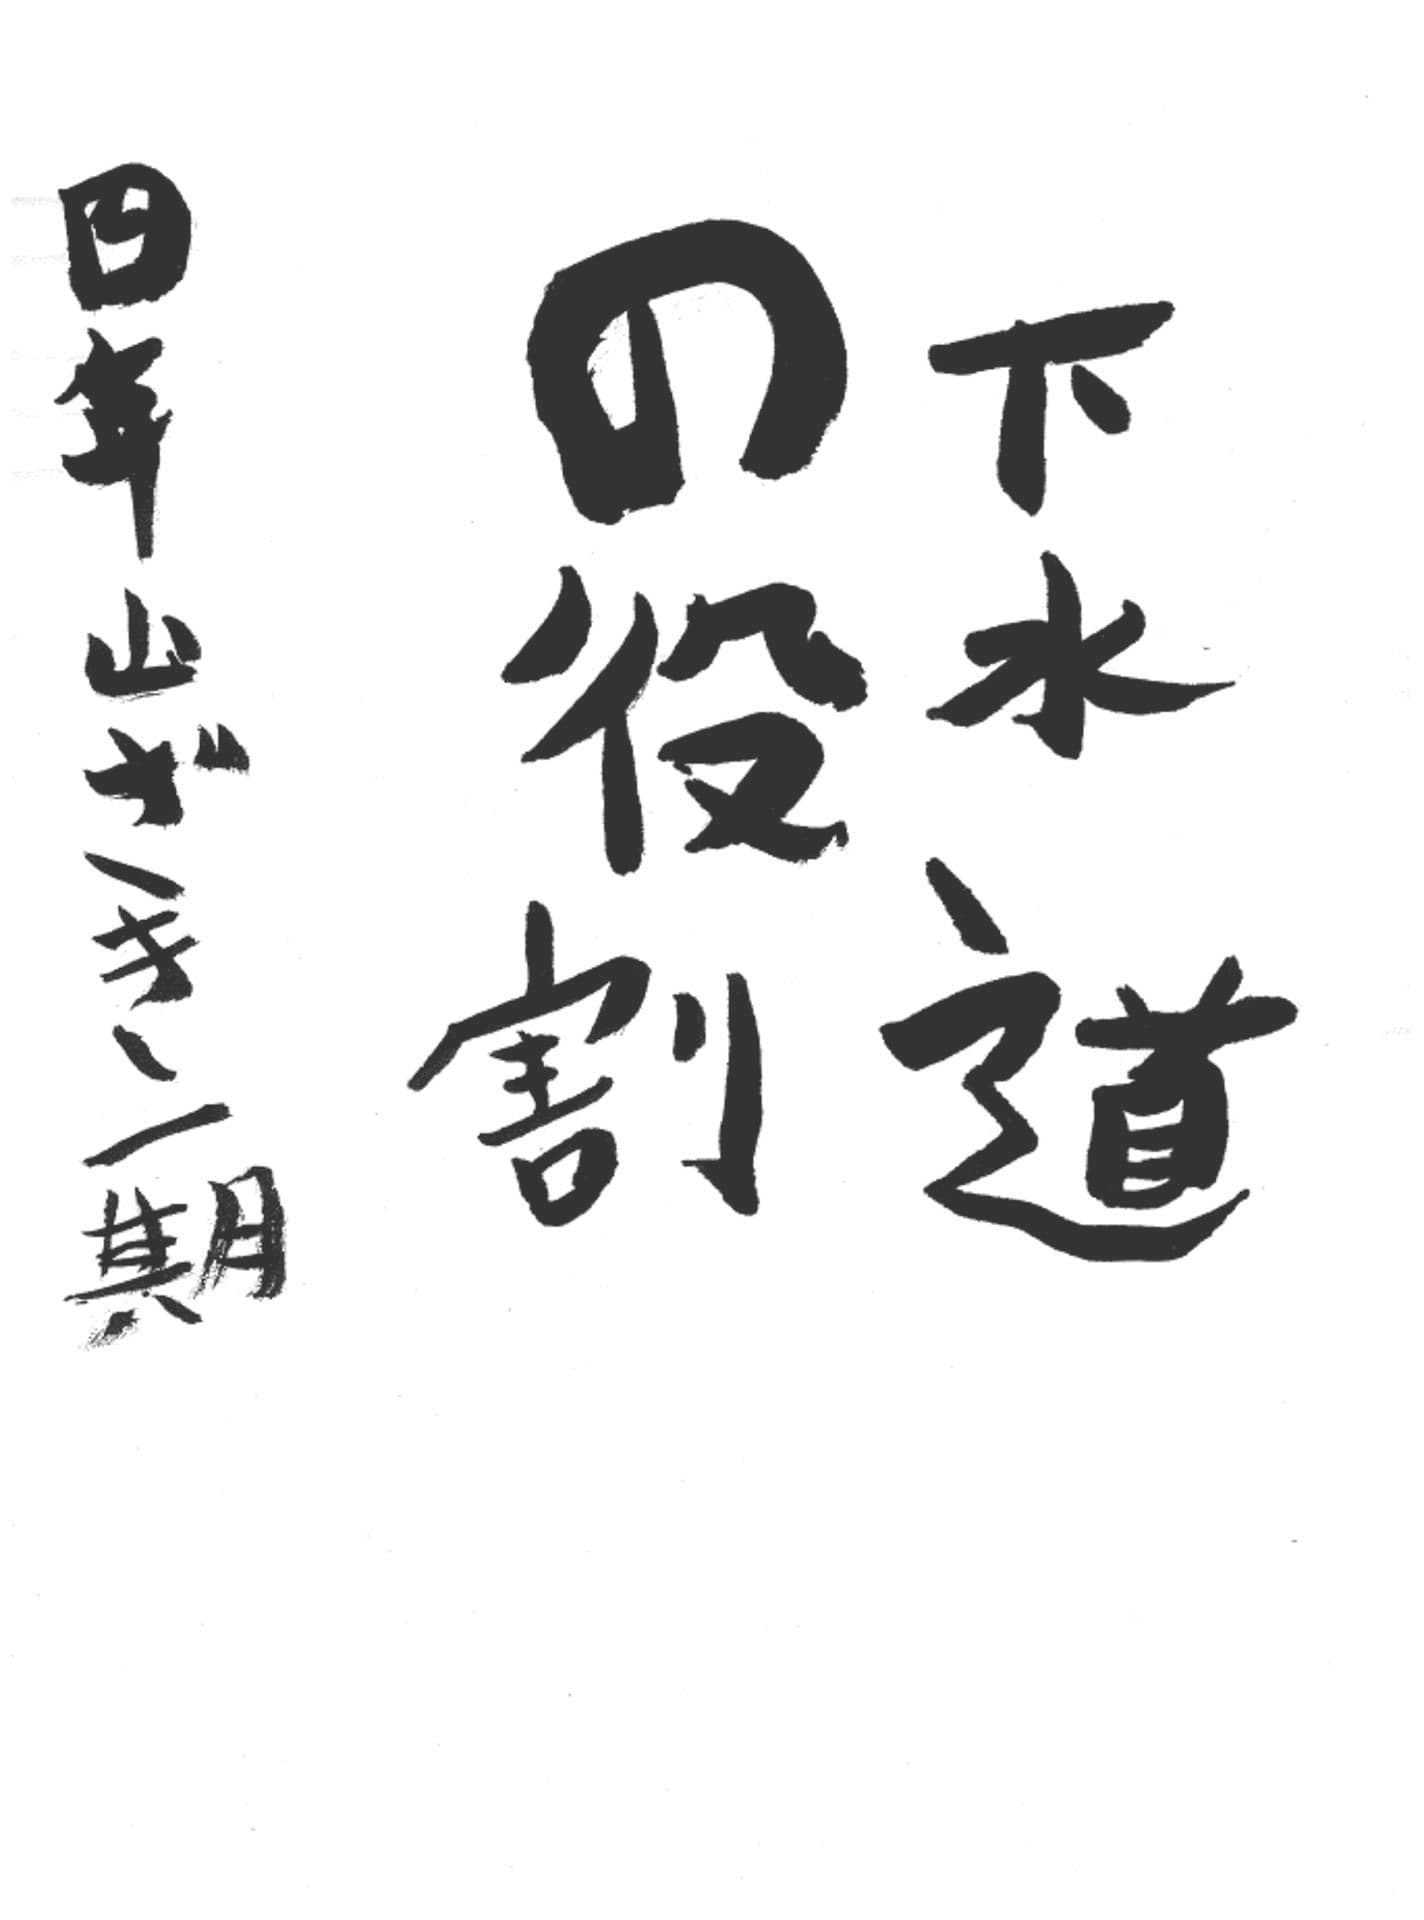 下水道
の役割
四年山ざき一期